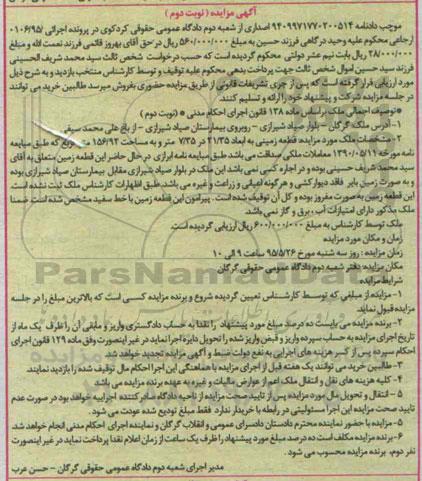 آگهی مزایده ( نوبت دوم )
موجب دادنامه ۹۴۰۹۹۷۱۷۷۰۲۰۰۵۱۴ اصداری از شعبه دوم دادگاه عمومی حقوقی کردکوی در پرونده اجرائی ۰۱۰۶۹۵/
ارجاعی محکوم علیه وحید درگاهی فرزند حسین به مبلغ ۵۶۰/۰۰۰/۰۰۰ ریال در حق آقای بهروز قائمی فرزند نعمت الله و مبلغ
۲۸/۰۰۰/۰۰۰ ریال بابت نیم عشر دولتی محکوم گردیده است که حسب درخواست شخص ثالث سید محمد شریف الحسینی
فرزند سید حسین اموال شخص ثالث جهت پرداخت بدهی محکوم علیه توقیف و توسط کارشناس منتخب بازدید و به شرح ذیل
مورد ارزیابی قرار گرفته است که پس از جری تشریفات قانونی از طریق مزایده حضوری بفروش میرسد طالبین خرید می توانند
در جلسه مزایده شرکت و پیشنهاد خود را ارائه و تسلیم کنند.
*توصیف اجمالی ملک براساس ماده ۱۳۸ قانون اجرای احکام مدنی * (نوبت دوم )
۱-آدرس ملک: گرگان - بلوار صیاد شیرازی - روبروی بیمارستان صیاد شیرازی - از باغ علی محمد سیفی
۲-مشخصات ملک مورد مزایده: قطعه زمینی به ابعاد ۲۱/۳۵ در ۷/۳۵ متر و به مساحت ۱۵۶/۹۲ مترمربع که طبق مبایعه
نامه مورخه ۱۳۹۰/۵/۱۱ معاملات ملکی صداقت می باشد طبق مبایعه نامه ابرازی در حال حاضر این قطعه زمین متعلق به آقای
سید محمد شریف حسینی بوده و در اجاره کسی نمی باشد این ملک در بلوار صیاد شیرازی مقابل بیمارستان صیاد شیرازی بوده
و به صورت زمین بایر فاقد دیوارکشی و هرگونه اعیانی و زراعت و غیره می باشد. طبق اظهارات کارشناس ملک ثبت نشده است.
این قطعه زمین به صورت مفروز بوده و کل آن توقیف شده است. پیرامون این قطعه زمین با خط سفید مشخص شده است. ضمنا
ملک مذکور دارای امتیازات آب ،برق و گاز نمی باشد.
ملک توسط کارشناس به مبلغ ۶۰۰/۰۰۰/۰۰۰ ریال ارزیابی گردیده است.
زمان و مکان مورد مزایده
زمان مزایده : روز سه شنبه مورخ ۹۵/۵/۲۶ ساعت ۹ الی ۱۰
مکان مزایده: دفتر شعبه دوم دادگاه عمومی حقوقی گرگان
شرایط مزایده
۱-مزایده از مبلغی که توسط کارشناس تعیین گردیده شروع و برنده مزایده کسی است که بالاترین مبلغ را در جلسه
مزایده قبول نماید.
۲-برنده مزایده می بایست ده درصد مبلغ مورد پیشنهاد را نقدا به حساب دادگستری واریز و مابقی آن را ظرف یک ماه از
تاریخ اجرای مزایده به حساب سپرده واریز و قبض واریز شده را تحویل دایره اجرا نماید در غیر اینصورت وفق ماده ۱۲۹ قانون اجرای
احکام سپرده پس از کسر هزینه های اجرایی به نفع دولت ضبط و آگهی مزایده تجدید خواهد شد.
۳-طالبین خرید می توانند یک هفته قبل از اجرای مزایده با هماهنگی این اجرا احکام مال توقیف شده را بازدید نمایند.
۴-کلیه هزینه های نقل و انتقال ملک اعم از عوارض مالیات و غیره به عهده برنده مزایده می باشد
۵-انتقال و تحویل مال مورد مزایده پس از تایید صحت مزایده از ناحیه دادگاه صادر کننده اجراییه خواهد بود در صورت عدم
تایید صحت مزایده این اجرا مسئولیتی در رابطه با خریدار ندارد فقط مبلغ تودیع شده عودت می شود.
۵-مزایده با حضور نماینده محترم دادستان دادسرای عمومی و انقلاب گرگان و نماینده اجرای احکام مدنی انجام خواهد شد.
۶-برنده مزایده مکلف است ده درصد مبلغ مورد پیشنهاد را ظرف یک ساعت از زمان اعلام نقدا پرداخت نماید در غیر اینصورت
نفر دوم، برنده مزایده محسوب می شود .
مدیر اجرای شعبه دوم دادگاه عمومی حقوقی گرگان - حسن عرب
ParsNamadData